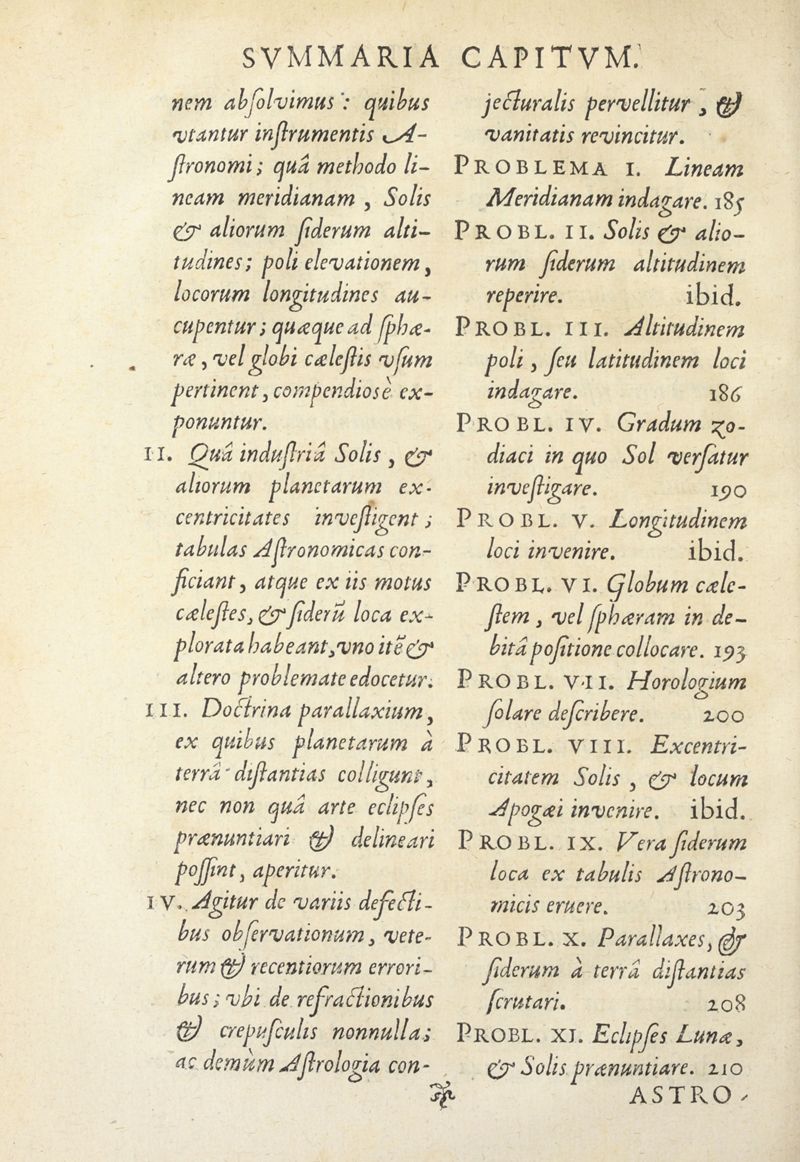 SVMMARIA CAPITVM.
nem absolvimus: quibus
vtantur instrumentis A-
stronomi; quâ methodo li-
neam meridianam, Solis
& aliorum siderum alti-
tudines; poli elevationem,
locorum longitudines au-
cupentur; quæque ad sphæ-
ræ, vel globi cælestis vsum
pertinent, compendiosè ex-
ponuntur.
II. Quâ industriâ Solis, &
aliorum planetarum ex-
centricitates investigent;
tabulas Astronomicas con-
ficiant, atque ex iis motus
cælestes, & siderũ loca ex-
plorata habeant, vno itẽ &
altero problemate edocetur.
III. Doctrina parallaxium,
ex quibus planetarum à
terrâ distantias colligunt,
nec non quâ arte eclipses
prænuntiari & delineari
possint, aperitur.
IV. Agitur de variis defecti-
bus observationum, vete-
rum & recentiorum errori-
bus; vbi de refractionibus
& crepusculis nonnulla;
ac demùm Astrologia con-
jecturalis pervellitur, &
vanitatis revincitur.
PROBLEMA I. Lineam
Meridianam indagare. 185
PROBL. II. Solis & alio-
rum siderum altitudinem
reperire. ibid.
PROBL. III. Altitudinem
poli, seu latitudinem loci
indagare. 186
PROBL. IV. Gradum zo-
diaci in quo Sol versatur
investigare. 190
PROBL. V. Longitudinem
loci invenire. ibid.
PROBL. VI. Globum cæle-
stem, vel sphæram in de-
bitâ positione collocare. 193
PROBL. VII. Horologium
solare describere. 200
PROBL. VIII. Excentri-
citatem Solis, & locum
Apogæi invenire. ibid.
PROBL. IX. Vera siderum
loca ex tabulis Astrono-
micis eruere. 203
PROBL. X. Parallaxes, &
siderum à terrâ distantias
scrutari. 208
PROBL. XI. Eclipses Lunæ,
& Solis prænuntiare. 210
ASTRO-